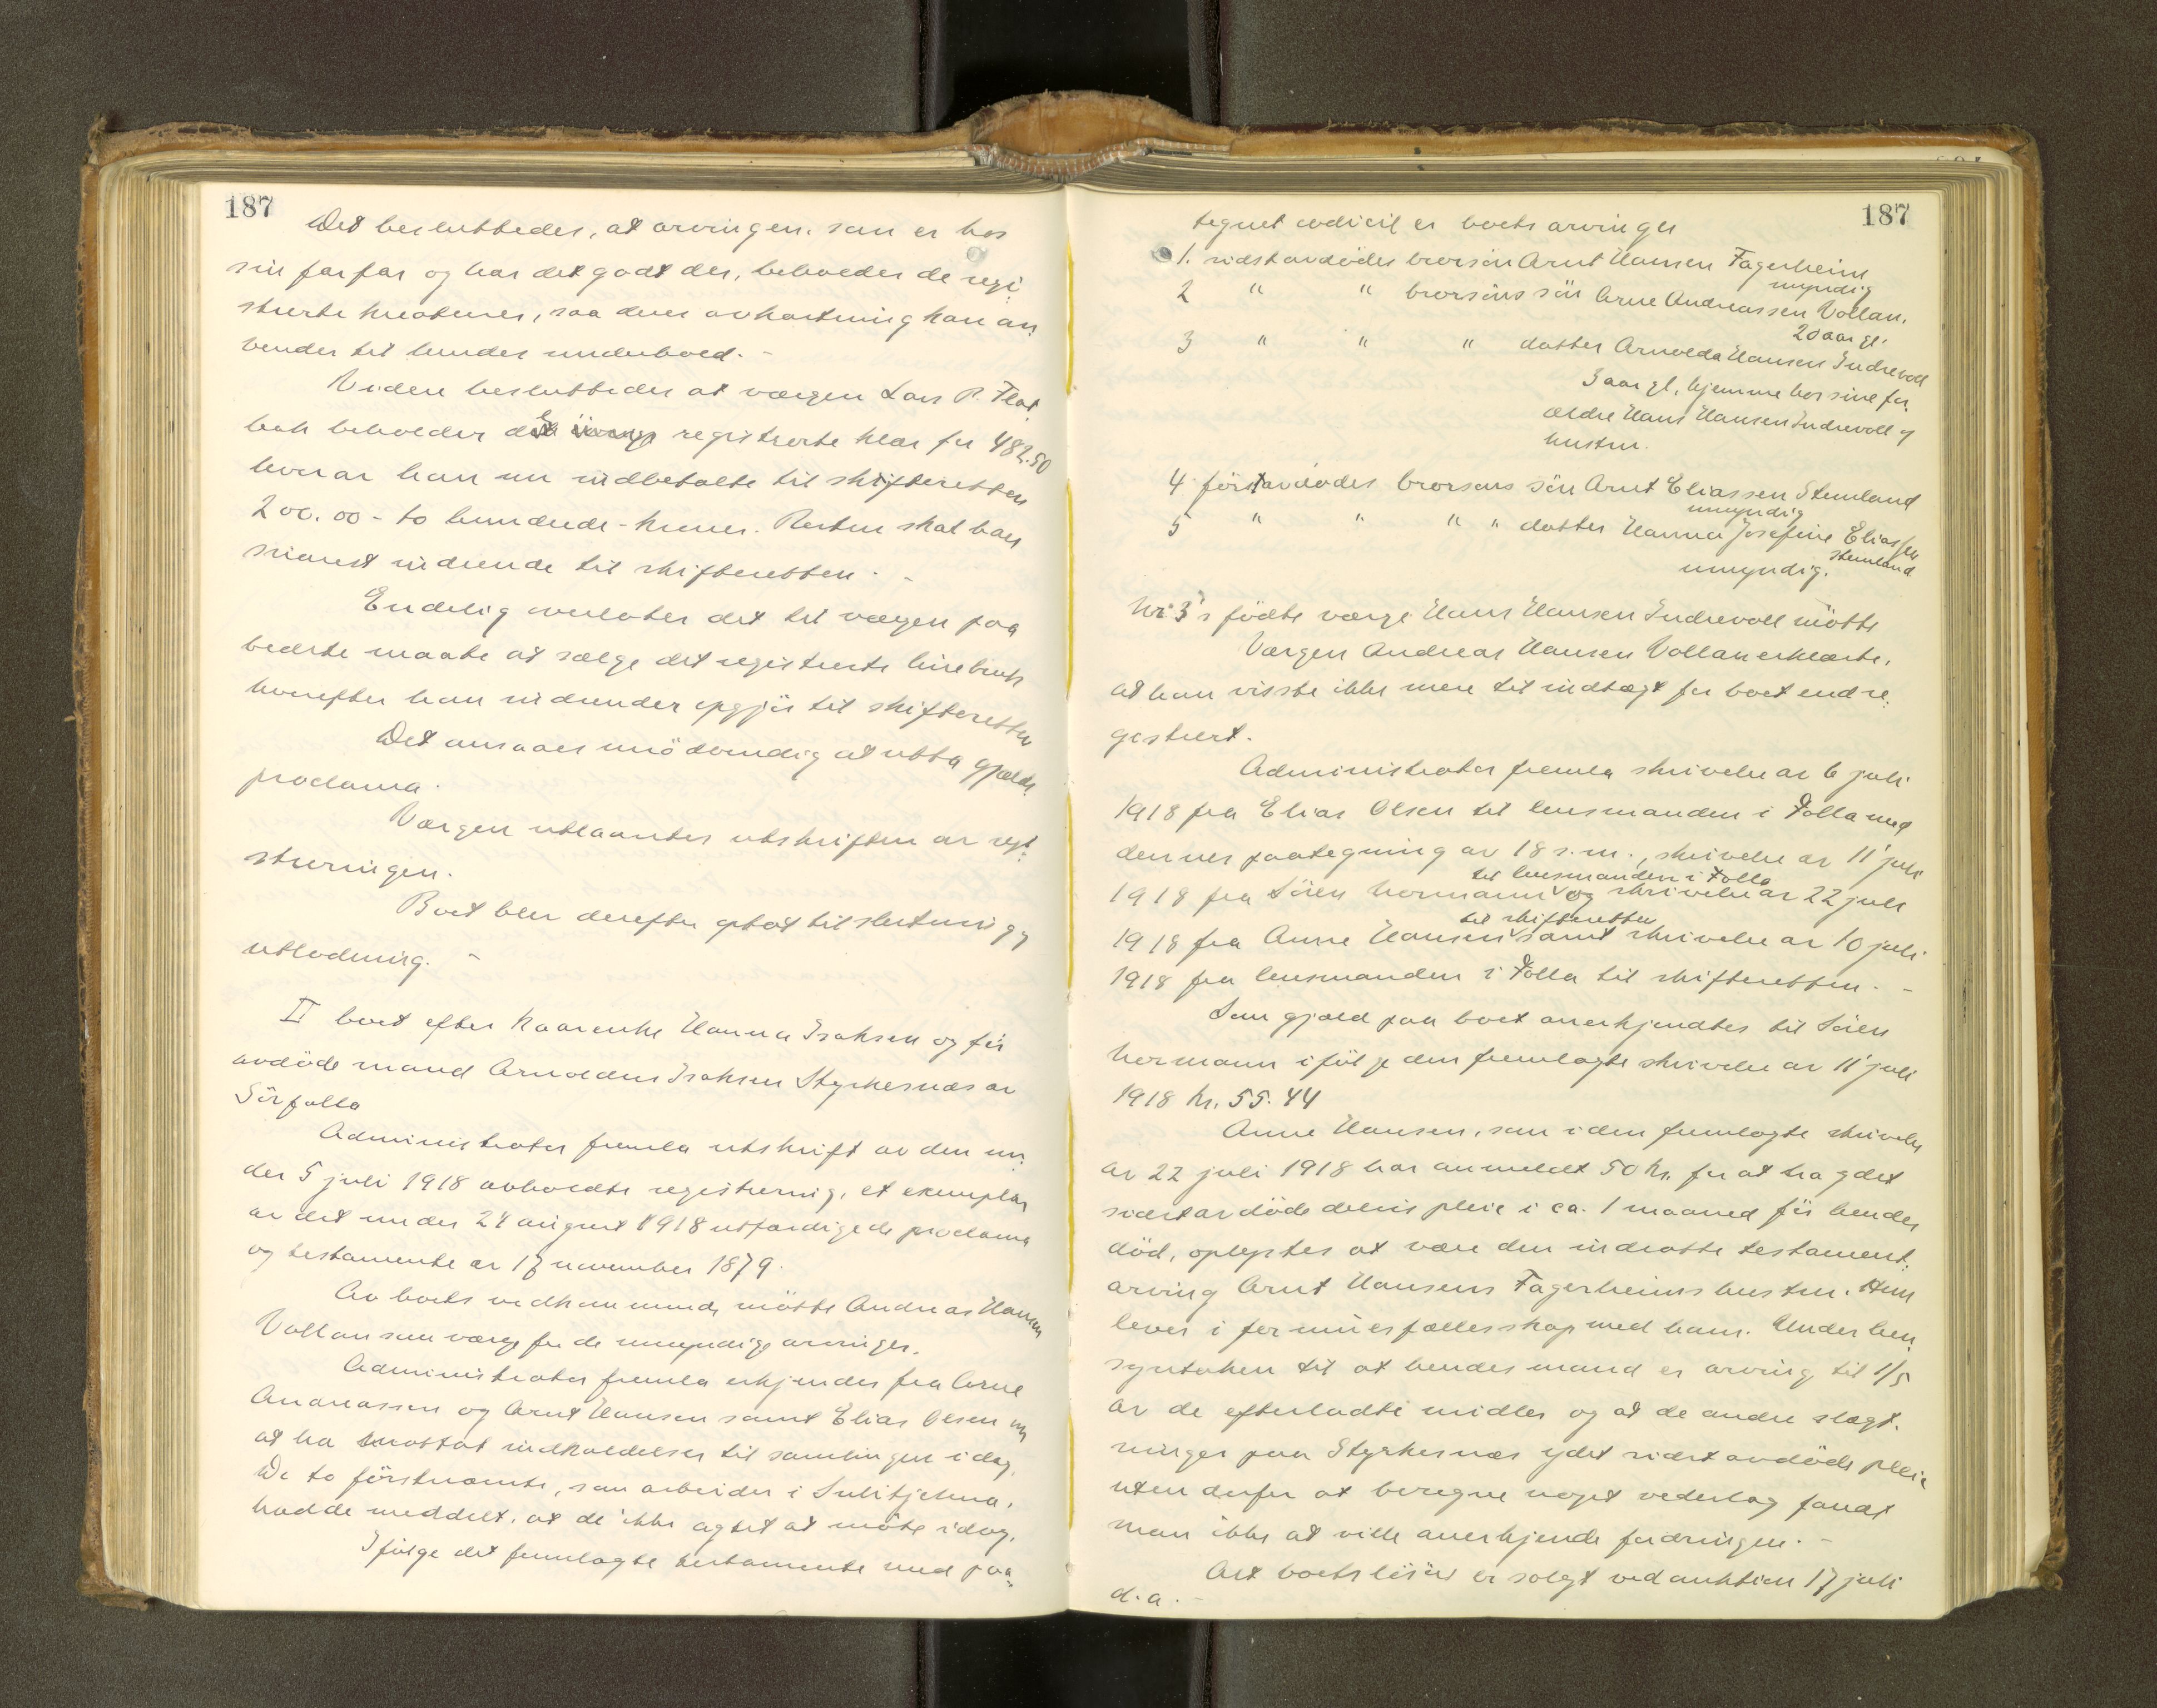 187
Det besluttedes, at arvingen, som er hos
sin farfar og har det godt der, beholder de regi-
strerte kreaturer, saa deres avkastning kan an-
vendes til hendes underhold. -
Videre besluttedes at værgen Lars P. Flat
beholder registrerte klær for 482.50
hvorav han nu indbetalte til skifteretten
200.00 - to hundrede - kroner. Resten skal han
snarest indsende til skifteretten. -
Endelig overlates det til værgen paa
bedste maate at sælge det registrerte linebruk
hvorefter han indsender opgjör til skifteretten
Det ansaaes unödvendig at utta gjelds-
proclama.
Værgen utlaantes utskriften av regi-
streringen.
Boet blev derefter optat til slutning og
utlodning. -
II boet efter kaarenke Hanna Isaksen og för
avdöde mand Arnoldus Isaksen Styrkesnæs av
Sörfolla
Administrator fremla utskrift av den un-
der 5 juli 1918 avholdte registrering, et exemplar
av det under 24 august 1918 utfærdigede proclama
og testamente av 17 november 1879.
Av boets vedkommende mötte Andreas Hansen
Vollan som værge for de umyndige arvinger.
Administrator fremla erkjendes fra Arne
Andreassen og Arnt Hansen samt Elias Olsen om
at ha mottat indkaldelser til samlingen idag.
De to förstnævnte, som arbeider i Sulitjelma,
hadde meddelt, at de ikke agtet at möte idag.
Ifölge det fremlagte testamente med paa-
187
tegnet codicil er boets arvinger
1. sidstavdödes brorsön Arnt Hansen Fagerheim
myndig
2 " " brorsöns sön Arne Andreassen Vollan,
20 aar gl.
3 " " " datter Arnolda Hansen Indrevoll
3 aar gl, hjemme hos sine for-
ældre Hans Hansen Indrevoll og
hustru.
4 förstavdödes brorsöns sön Arnt Eliassen Stemland
umyndig
5 " " " " datter Hanna Josefine Eliassen
Stemland
umyndig.
Nr 3's födte værge Hans Hansen Indrevoll mötte
Værgen Andreas Hansen Vollan erklærte,
at han visste ikke mere til indtægt for boet end re-
gistrert.
Administrator fremla skrivelse av 6 juli
1918 fra Elias Olsen til lensmanden i Folla med
dennes paategning av 18 s.m., skrivelse av 11 juli
til lensmanden i Folla
1918 fra Sören Hermann og skrivelse av 22 juli
til skifteretten
1918 fra Anne Hansen samt skrivelse av 10 juli
1918 fra lensmanden i Folla til skifteretten. -
Som gjæld paa boet anerkjendtes til Sören
Hermann ifölge den fremlagte skrivelse av 11 juli
1918 kr. 55.44
Anne Hansen, som i den fremlagte skrivelse
av 22 juli 1918 har anmeldt 50 kr. for at ha ydet
sidstavdöde delvis pleie i ca. 1 maaned för hendes
död, oplystes at være den indsatte testament-
arving Arnt Hansens Fagerheims hustru. Hun
lever i formuesfællesskap med ham. Under hen-
syntaken til at hendes mand er arving til 1/5
av de efterladte midler og at de andre slægt-
ninger paa Styrkesnæs ydet sidstavdöde pleie
uten derfor at beregne noget vederlag fandt
man ikke at ville anerkjende fordringen. -
Alt boets lösöre er solgt ved auktion 17 juli
d.a. -